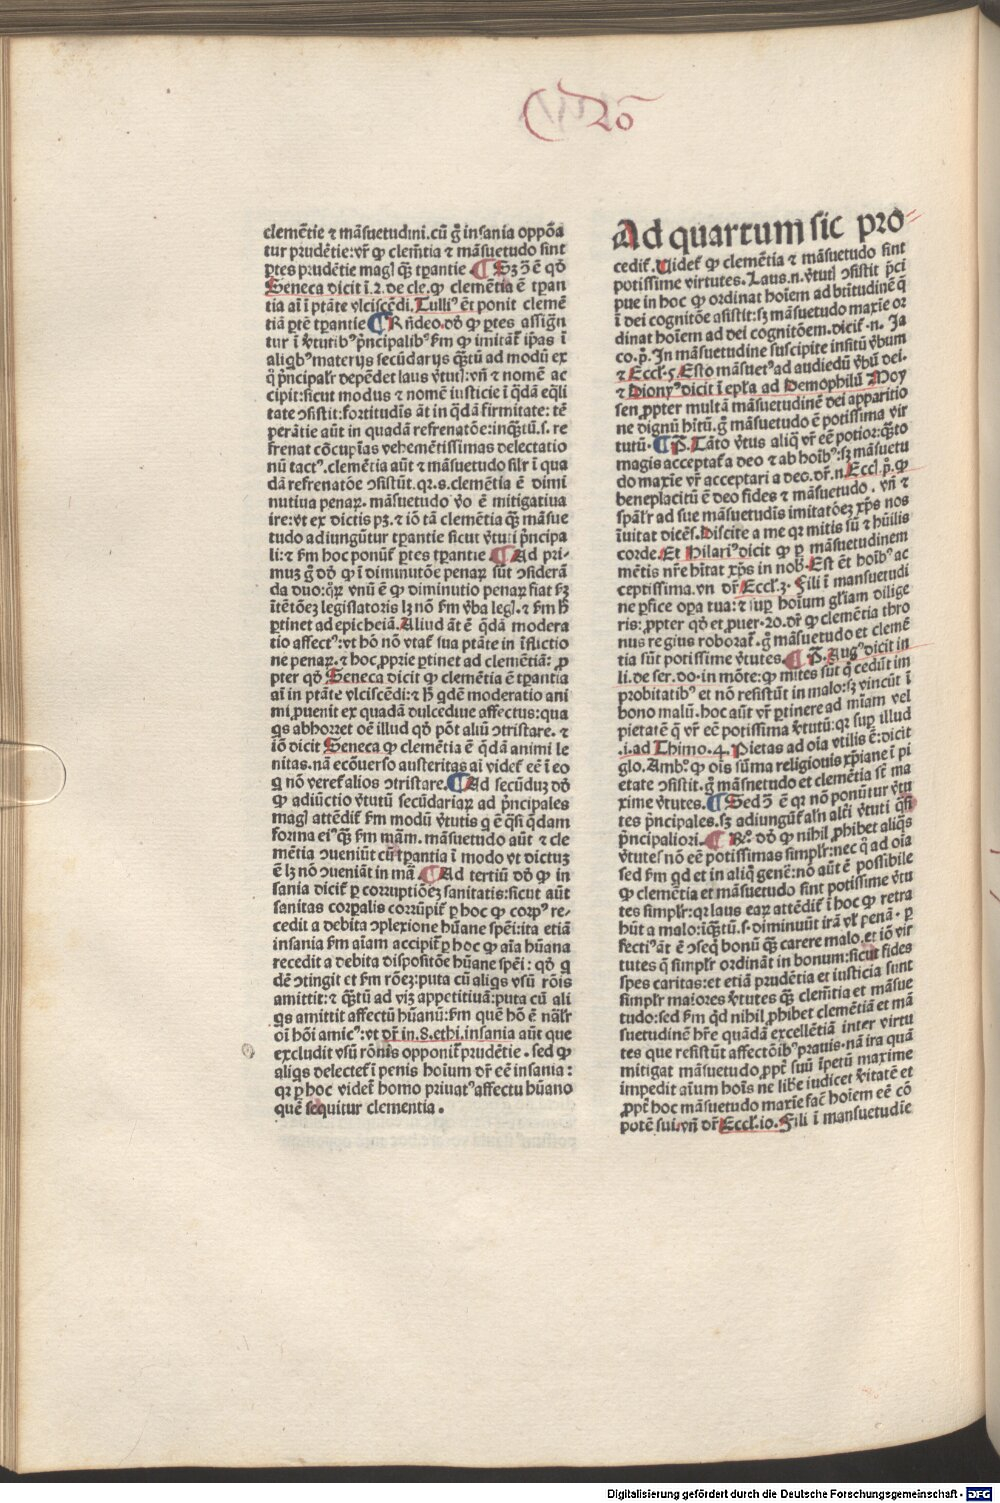 20
clemētie ⁊ mãsuetudini. cū g̃ insania oppōa
tur prudētie: vr̃ ꝙ clem̃tia ⁊ mãsuetudo sint
ꝑtes prudētie magꝭ q̃ꝫ tꝑantie. ¶ Sꝫ ↄ̃ ē qđ
Seneca dicit ĩ. 2. de cle. ꝙ clemētia ē tꝑan
tia aĩ ĩ ptãte vlciscēdi. Tulliꝰ ēt ponit clemē
tiã ꝑtē tꝑantie ¶ Rñdeo. dđ ꝙ ꝑtes assigñ
tur ĩ v̓tutibꝰ p̓ncipalibꝰ ẜm ꝙ imitãt̃ ip̃as ĩ
aliqbꝰ materijs secūdarijs q̃ꝫtū ad modū ex
q̊ p̓ncipalr̃ depēdet laus v̓tutꝭ: vñ ⁊ nomē ac
cipit: sicut modus ⁊ nomē iusticie ĩ q̃dã eq̃li
tate ↄ̃sistit: fortitudĩs ãt in q̃dã firmitate: tē
perãtie aūt in quadã refrenatōe: inq̃ꝫtū. s. re
frenat cōcupĩas vehemētissimas delectatio
nū tactꝰ. clemētia aūt ⁊ mãsuetudo silr̃ ĩ qua
dã refrenatōe ↄ̃sistūt. qꝛ. s. clemētia ē dimi
nutiua penaꝝ. mãsuetudo v̓o ē mitigatiua
ire: vt ex dictis pꝫ. ⁊ iō tã clemētia q̃ꝫ mãsue
tudo adiungūtur tꝑantie sicut v̓tuti p̓ncipa
li: ⁊ ẜm hoc ponūt̃ ꝑtes tꝑantie ¶ Ad pri-
muꝫ g̃ dđ ꝙ ĩ diminutōe penaꝝ sūt ↄ̃siderã
da duo: qōꝝ vnū ē ꝙ diminutio penaꝝ fiat ẜꝫ
ĩtētōeꝫ legislatoris lꝫ nō ẜm v̓ba legꝭ. ⁊ ẜm h̃
ꝑtinet ad epicheiã. Aliud ãt ē q̃dã modera
tio affectꝰ: vt hō nō vtat̃ sua ptãte in ĩflictio
ne penaꝝ. ⁊ hoc ꝓprie ꝑtinet ad clemētiã: ꝓ
pter qđ Seneca dicit ꝙ clemētia ē tꝑantia
aĩ in ptãte vlciscēdi: ⁊ h̃ q̇dē moderatio ani
mi ꝓuenit ex quadã dulcedine affectus: qua
q̇s abhorret oē illud qđ pōt aliū ↄ̃tristare. ⁊
iō dicit Seneca ꝙ clemētia ē q̃dã animi le
nitas. nã ecōuerso austeritas aĩ videt̃ eē ĩ eo
q̇ nō veret̃ alios ↄ̃tristare. ¶ Ad secūduꝫ dđ
ꝙ adiūctio v̓tutū secūdariaꝝ ad p̓ncipales
magꝭ attēdit̃ ẜm modū v̓tutis q̇ ē q̃si q̃dam
forma eiꝰ q̃ꝫ ẜm mãm. mãsuetudo aūt ⁊ cle
mētia ↄ̃ueniūt cū tꝑantia ĩ modo vt dictuꝫ
ē lꝫ nō ↄ̃ueniãt in mã. ¶ Ad tertiū dđ ꝙ in
sania dicit̃ ꝑ corruptiōeꝫ sanitatis: sicut aūt
sanitas corꝑalis corrūpit̃ ꝑ hoc ꝙ corpꝰ re-
cedit a debita ↄ̃plexione hūane spēi: ita etiã
insania ẜm aĩam accipit̃ ꝑ hoc ꝙ aĩa hūana
recedit a debita dispositōe hūane spēi: qđ q̇
dē ↄ̃tingit et ẜm rōeꝫ: puta cū aliq̇s vsū rōis
amittit: ⁊ q̃ꝫtū ad viꝫ appetitiuã: puta cū ali
q̇s amittit affectū hūanū: ẜm quē hō ē nãlr̃
oĩ hōi amicꝰ: vt dr̃ in. 8. ethi. insania aūt que
excludit vsū rōnis opponit̃ prudētie. sed ꝙ
aliq̇s delectet̃ ĩ penis hoĩum dr̃ eē insania:
qꝛ ꝑ hoc videt̃ homo priuatꝰ affectu hūano
quē sequitur clementia.
Ad quartum sic pro-
cedit̃. Uidet̃ ꝙ clemētia ⁊ mãsuetudo sint
potissime virtutes. Laus. n. v̓tutꝭ ↄ̃sistit p̓ci
pue in hoc ꝙ ordinat hoĩem ad btĩtudinē q̃
ĩ dei cognitōe ↄ̃sistit: sꝫ mãsuetudo maxĩe or
dinat hoĩem ad dei cognitōem. dicit̃. n. Ja
co. p̊. In mãsuetudine suscipite insitū v̓bum
⁊ Eccl̃. 5. Esto mãsuetꝰ ad audiēdū v̓bū dei.
⁊ Dionyꝰ dicit ĩ epl̃a ad Demophilū Moy
sen ꝓpter multã mãsuetudinē dei apparitio
ne dignū hr̃tū. g̃ mãsuetudo ē potissima vir
tutū. ¶ P̃. Tãto v̓tus aliq̃ vr̃ eē potior: q̃ꝫto
magis acceptat̃ a deo ⁊ ab hoĩbꝰ: sꝫ mãsuetu
do maxĩe vr̃ acceptari a deo. dr̃. n. Eccl̃. p̊. ꝙ
beneplacitū ē deo fides ⁊ mãsuetudo. vñ ⁊
spãlr̃ ad sue mãsuetudĩs imitatōeꝫ xp̃s nos
ĩuitat dicēs. Discite a me qꝛ mitis sū ⁊ hũilis
corde. Et Hilariꝰ dicit ꝙ ꝑ mãsuetudinem
mētis nr̃e hĩtat xp̃s in nobꝭ. Est ēt hoĩbꝰ ac
ceptissima. vn dr̃ Eccl̃. 3. Fili ĩ mansuetudi
ne ꝑfice oꝑa tua: ⁊ suꝑ hoĩum gl̃iam dilige
ris: ꝓpter qđ et ꝓuer. 20. dr̃ ꝙ clemētia thro
nus regius roborat̃. g̃ mãsuetudo et clemē
tia sūt potissime v̓tutes. ¶ P̃. Augꝰ dicit in
li. de ser. do. in mōte: ꝙ mites sūt q̇ cedūt im
probitatibꝰ et nō resistūt in malo: sꝫ vincūt ĩ
bono malū. hoc aūt vr̃ ꝑtinere ad mĩam vel
pietatē q̃ vr̃ eē potissima v̓tutū: qꝛ suꝑ illud
.i. ad Thimo. 4. Pietas ad oĩa vtilis ē: dicit
glo. Ambꝭ. ꝙ oĩs sūma religionis xp̃iane ĩ pi
etate ↄ̃sistit. g̃ mãsuetudo et clemētia sē ma
xime v̓tutes. ¶ Sed ↄ̃ ē qꝛ nō ponūtur v̓tu
tes p̓ncipales. sꝫ adiungūt̃ aln̄ alt̃i v̓tuti q̃si
p̓ncipaliori. ¶ Rꝭ. dđ ꝙ nihil ꝓhibet aliq̃s
v̓tutes nō eē potissimas simplr̃: nec q̊ ad oĩa
sed ẜm qd et in aliq̊ genē: nō aūt ē possibile
ꝙ clemētia et mãsuetudo sint potissime v̓tu
tes simplr̃: qꝛ laus eaꝝ attēdit̃ ĩ hoc ꝙ retra
hūt a malo: inq̃ꝫtū. s. diminuūt irã vl̃ penã. ꝑ
fectiꝰ ãt ē ↄ̃seq̇ bonū q̃ꝫ carere malo. et iō vir
tutes q̃ simplr̃ ordinãt in bonum: sicut fides
spes caritas: et etiã prudētia et iusticia sunt
simplr̃ maiores v̓tutes q̃ꝫ clem̃tia et mãsue
tudo: sed ẜm qd nihil ꝓhibet clemētiã et mã
suetudinē hr̃e quãdã excellētiã inter virtu
tes que resistūt affectōibꝰ prauis. nã ira quã
mitigat mãsuetudo ꝓpt̃ suū ĩpetū maxime
impedit aĩum hoĩs ne libe iudicet v̓itatē et
ꝓpt̃ hoc mãsuetudo maxĩe facit hoĩem eē cō
potē sui. vñ dr̃ Eccl̃. 10. Fili ĩ mansuetudĩe
Digitalisierung gefördert durch die Deutsche Forschungsgemeinschaft - DFG